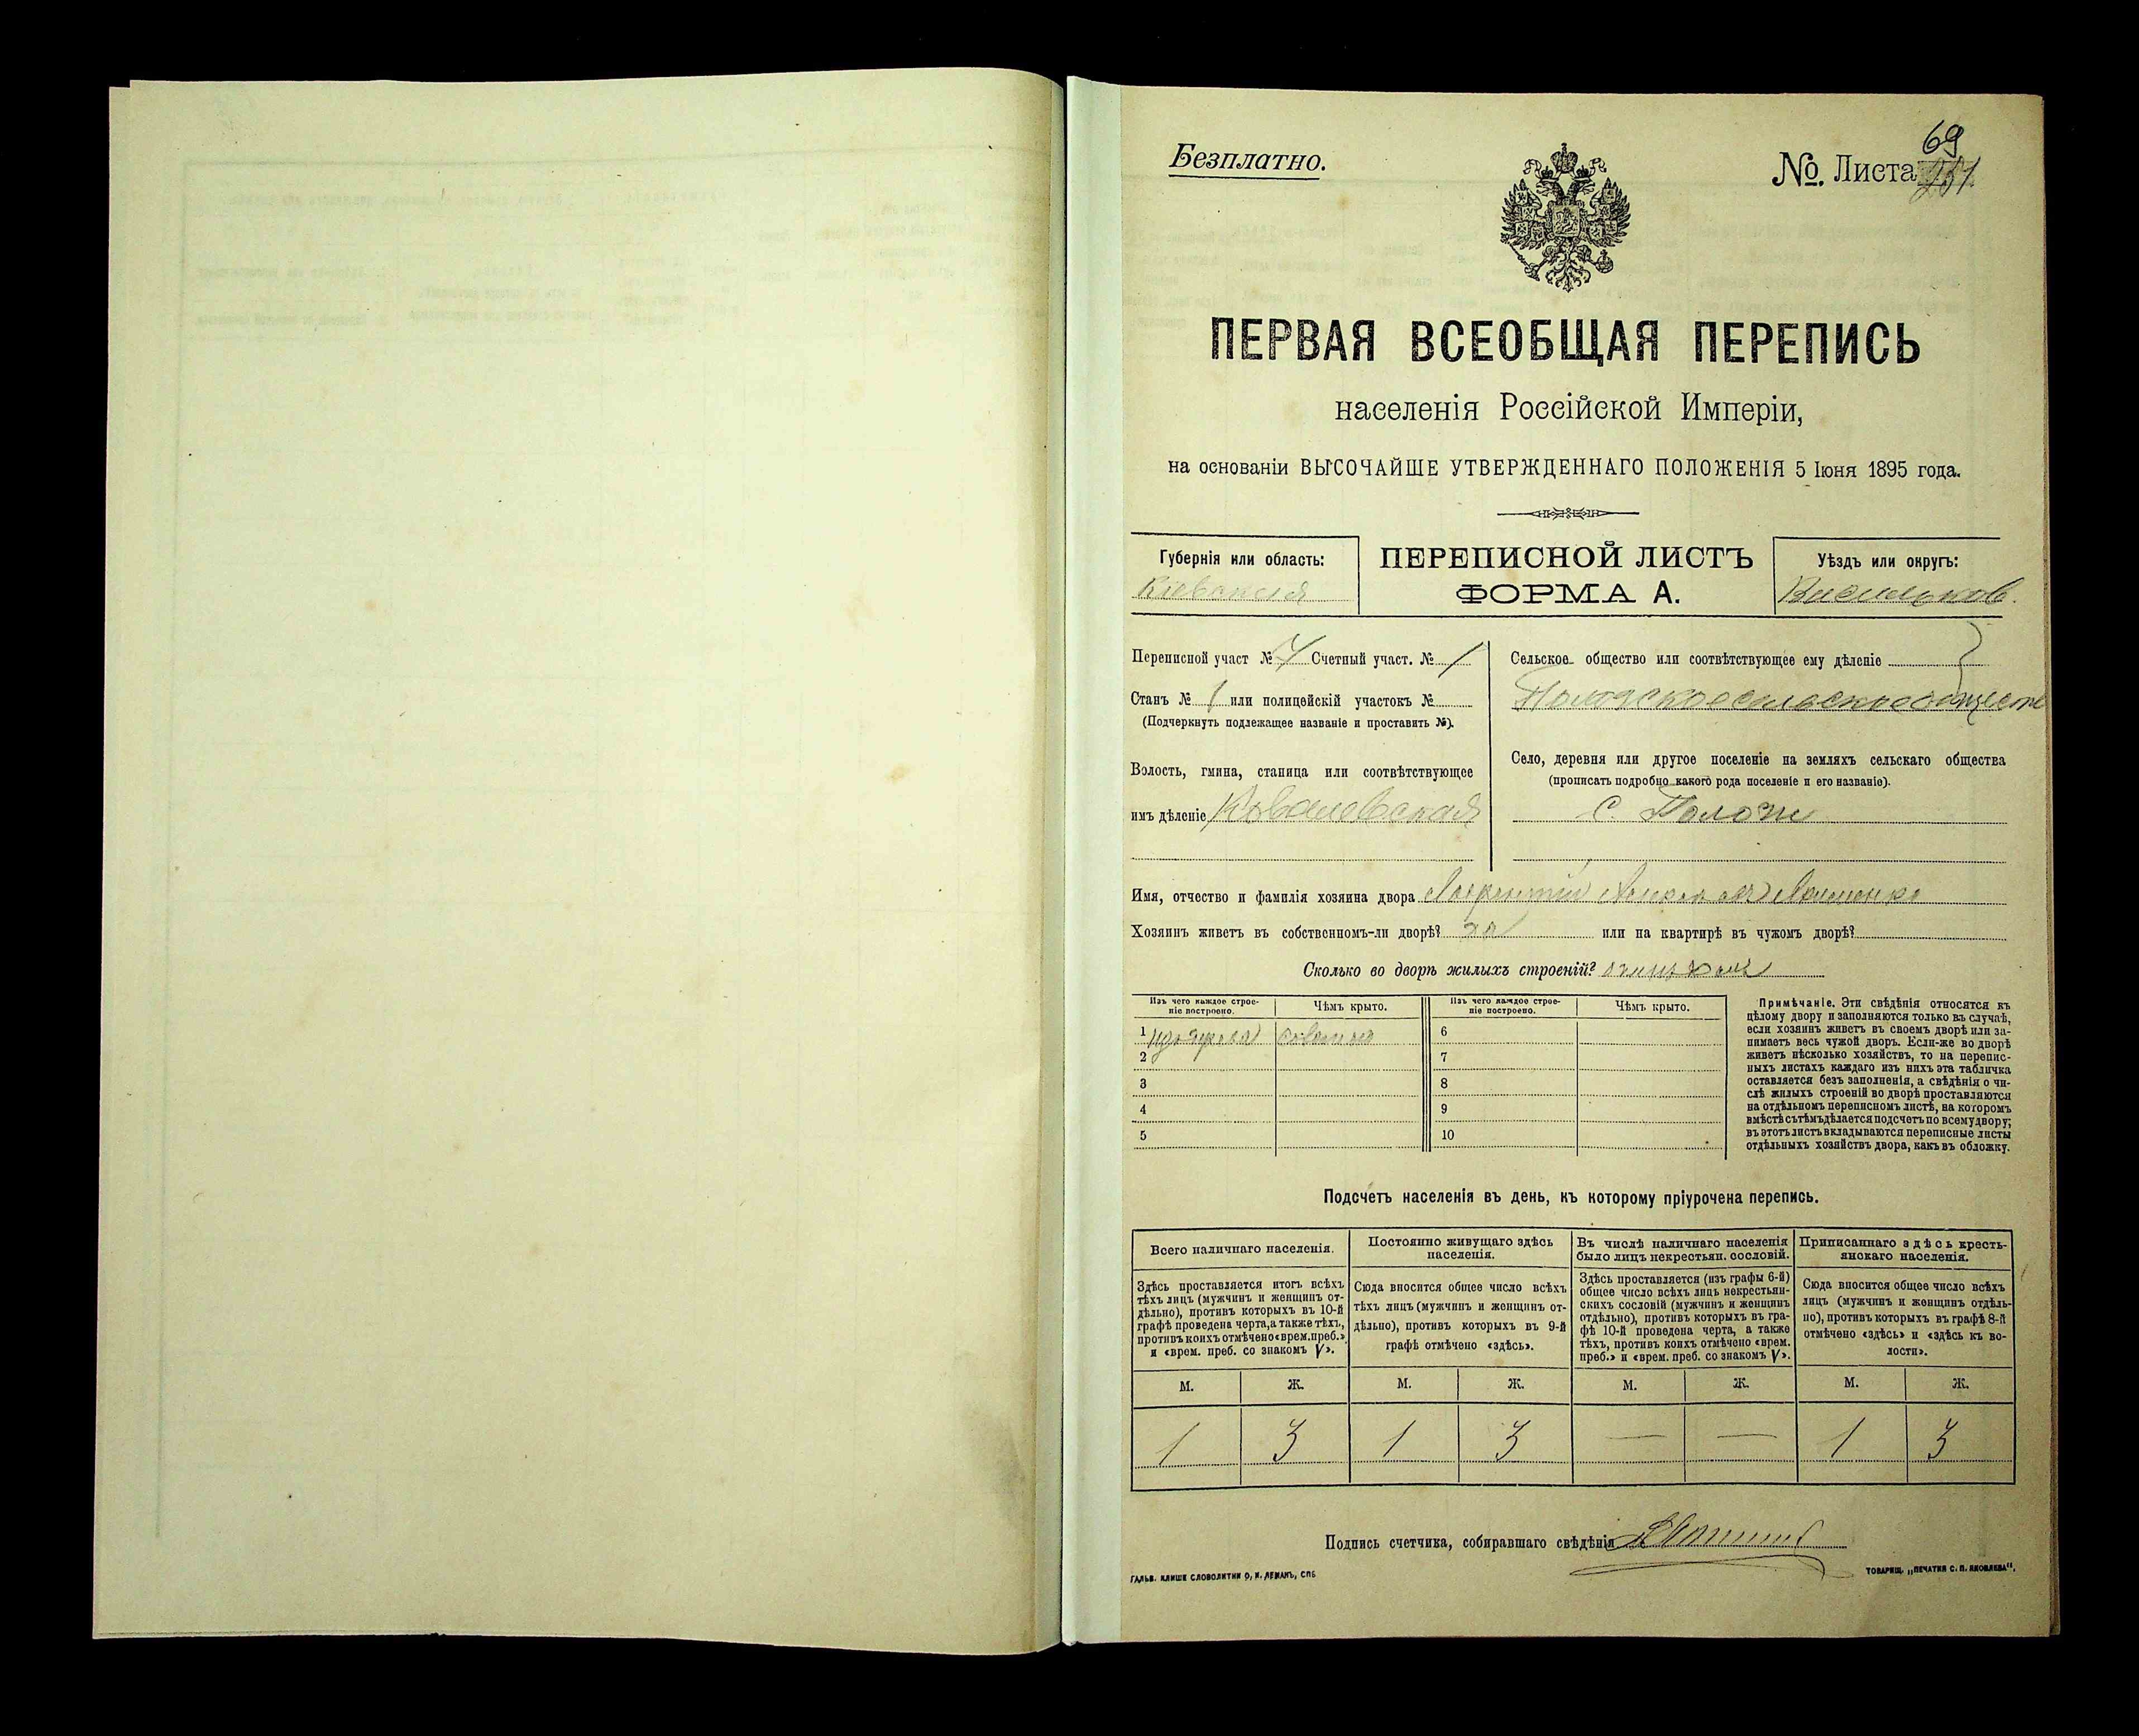 Безплатно.
69
№. Листа
ПЕРВАЯ ВСЕОБЩАЯ ПЕРЕПИСЬ
населенія Россійской Имперіи,
на основаніи ВЫСОЧАЙШЕ УТВЕРЖДЕННАГО ПОЛОЖЕНІЯ 5 Іюня 1895 года.
Губернія или область:
Кіевская
ПЕРЕПИСНОЙ ЛИСТЪ
ФОРМА А.
Уѣздъ или округъ:
Васильков.
Переписной участ № Счетный участ. № 1
Станъ № 1 или полицейскій участокъ №
(Подчеркнуть подлежащее названіе и проставить №).
Волость, гмина, станица или соотвѣтствующее
имъ дѣленіе Ковалевская
Сельское общество или соотвѣтствующее ему дѣленіе
Село, деревня или другое поселеніе на земляхъ сельскаго общества
(прописать подробно какого рода поселеніе и его названіе).
с. Пологи
Имя, отчество и фамилія хозяина двора
Хозяинъ живетъ въ собственномъ-ли дворѣ? да или на квартирѣ въ чужомъ дворѣ?
Сколько во дворѣ жилыхъ строеній?
Изъ чего каждое строе-
ніе построено.
Чѣмъ крыто.
1
2
3
4
5
Изъ чего каждое строе-
ніе построено.
Чѣмъ крыто.
6
7
8
9
10
Примѣчаніе. Эти свѣдѣнія относятся къ
цѣлому двору и заполняются только въ случаѣ,
если хозяинъ живетъ въ своемъ дворѣ или за-
нимаетъ весь чужой дворъ. Если-же во дворѣ
живетъ нѣсколько хозяйствъ, то на перепис-
ныхъ листахъ каждаго изъ нихъ эта табличка
оставляется безъ заполненія, а свѣдѣнія о чи-
слѣ жилыхъ строеній во дворѣ проставляются
на отдѣльномъ переписномъ листѣ, на которомъ
вмѣстѣ съ тѣмъ дѣлается подсчетъ по всему двору;
въ этотъ листъ вкладываются переписные листы
отдѣльныхъ хозяйствъ двора, какъ въ обложку.
Подсчетъ населенія въ день, къ которому пріурочена перепись.
Всего наличнаго населенія.
Здѣсь проставляется итогъ всѣхъ
тѣхъ лицъ (мужчинъ и женщинъ от-
дѣльно), противъ которыхъ въ 10-й
графѣ проведена черта, а также тѣхъ,
противъ коихъ отмѣчено «врем. преб.»
и «врем. преб. со знакомъ V».
Постоянно живущаго здѣсь
населенія.
Сюда вносится общее число всѣхъ
тѣхъ лицъ (мужчинъ и женщинъ от-
дѣльно), противъ которыхъ въ 9-й
графѣ отмѣчено «здѣсь».
Въ числѣ наличнаго населенія
было лицъ некрестьян. сословій.
Здѣсь проставляется (изъ графы 6-й)
общее число всѣхъ лицъ некрестьян-
скихъ сословій (мужчинъ и женщинъ
отдѣльно), противъ которыхъ въ гра-
фѣ 10-й проведена черта, а также
тѣхъ, противъ коихъ отмѣчено «врем.
преб.» и «врем. преб. со знакомъ V».
Приписаннаго здѣсь кресть-
янскаго населенія.
Сюда вносится общее число всѣхъ
лицъ (мужчинъ и женщинъ отдѣль-
но), противъ которыхъ въ графѣ 8-й
отмѣчено «здѣсь» и «здѣсь къ во-
лости».
М. Ж. М. Ж. М. Ж. М. Ж.
1 3 1 3 — — 1 3
Подпись счетчика, собиравшаго свѣдѣнія
ГАЛЬВ. КЛИШЕ СЛОВОЛИТНИ О, И. ЛЕМАНЪ, СПБ
ТОВАРИЩ. „ПЕЧАТНЯ С. П. ЯКОВЛЕВА“.